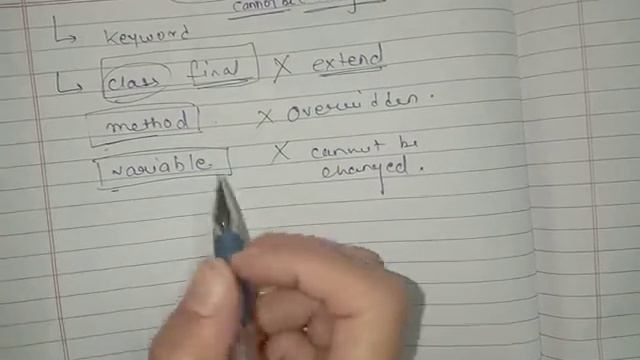 cannot be
↳ Keyword
↳ class final X extend
method X Overridden.
variable. X cannot be
changed.